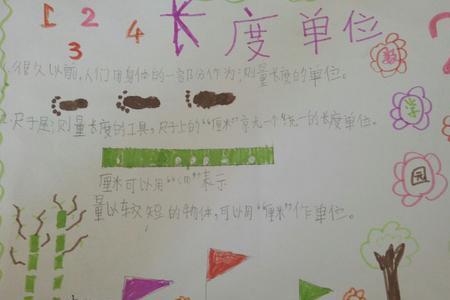 1 2 3 4
长度单位
1.很久以前,人们用身体的一部分作为测量长度的单位。
2.尺子是测量长度的工具,尺子上的“厘米”就是一个统一的长度单位。
厘米可以用“cm”表示
量比较短的物体,可以用“厘米”作单位。
数
学
园